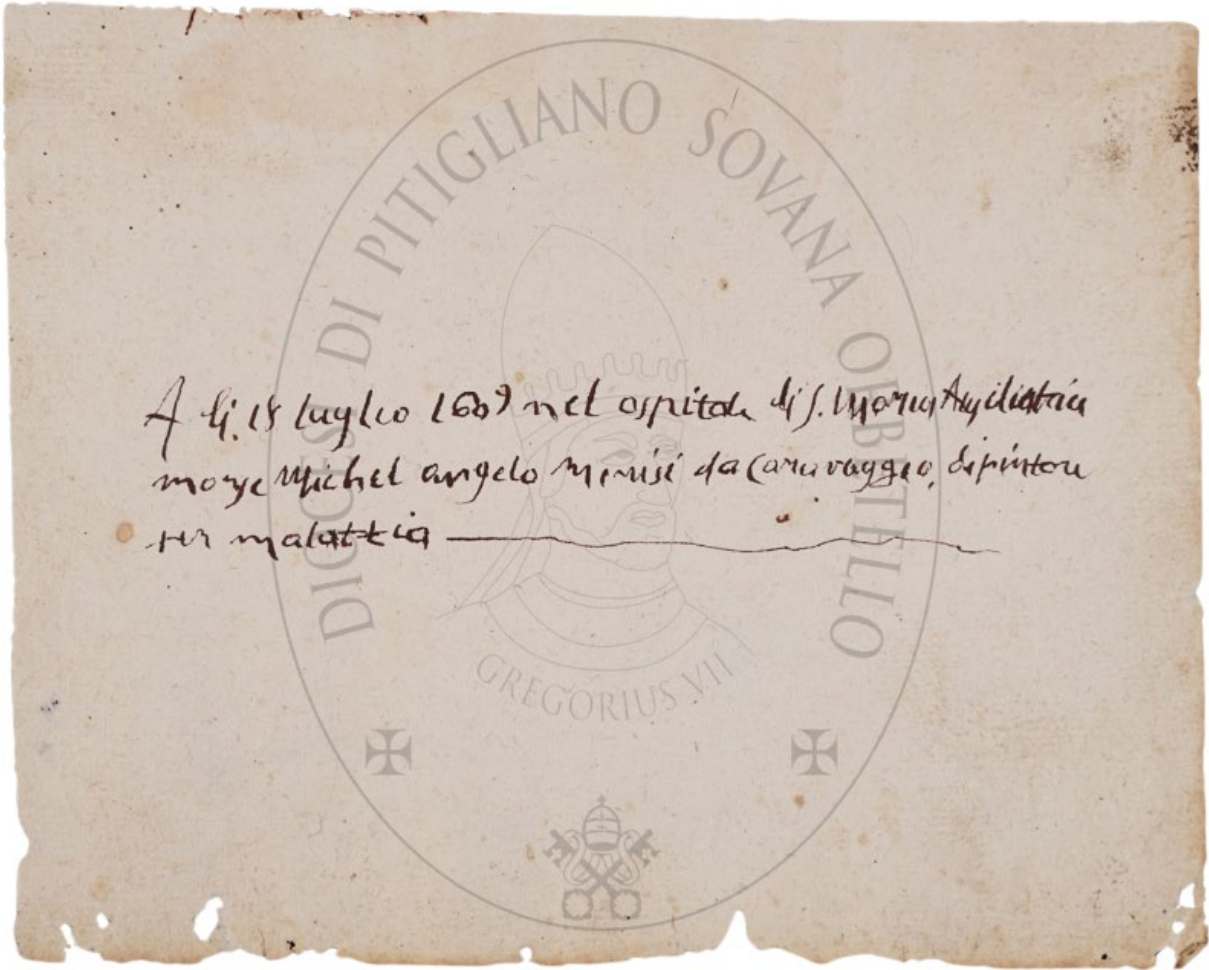 DIOCESI DI PITIGLIANO SOVANA ORBETELLO
A li 18 luglio 1609 nel ospitale di S. Maria Ausiliatrice
morse Michel angelo Merisi da Caravaggio, dipintore
per malattia
GREGORIUS VII